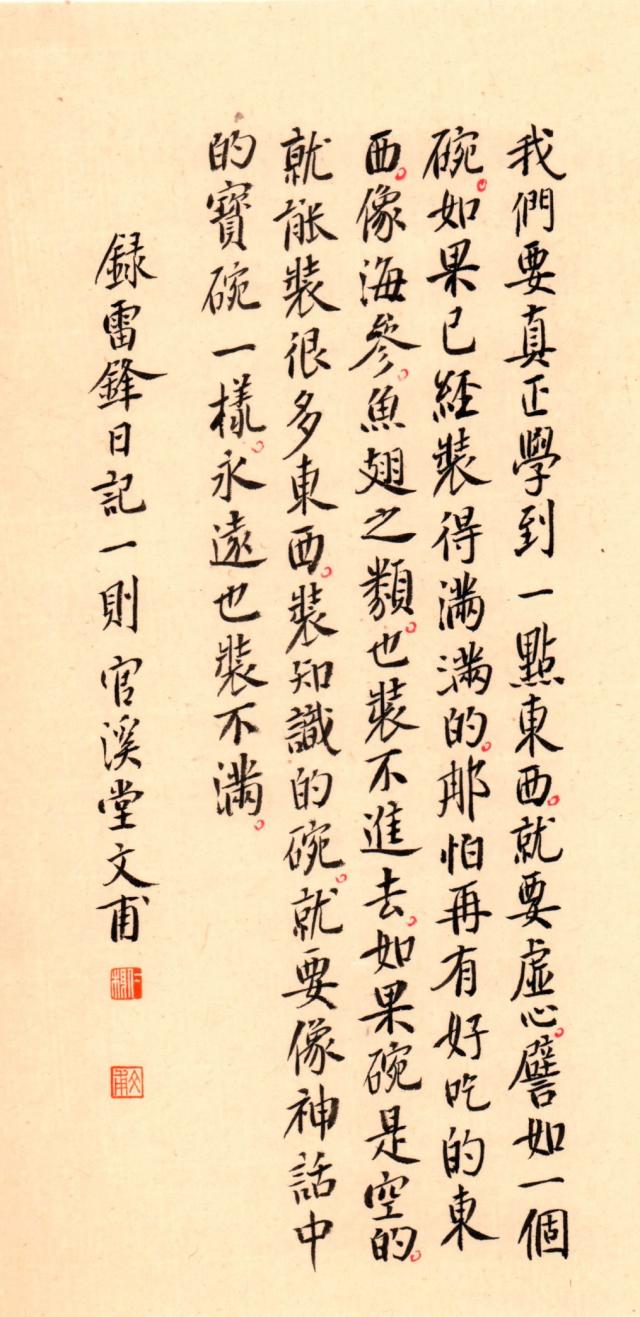 我們要真正學到一點東西。就要虛心。譬如一個
碗。如果已經裝得滿滿的。那怕再有好吃的東
西。像海參。魚翅之類。也裝不進去。如果碗是空的。
就能裝很多東西。裝知識的碗。就要像神話中
的寶碗一樣。永遠也裝不滿。
録雷鋒日記一則官溪堂文甫